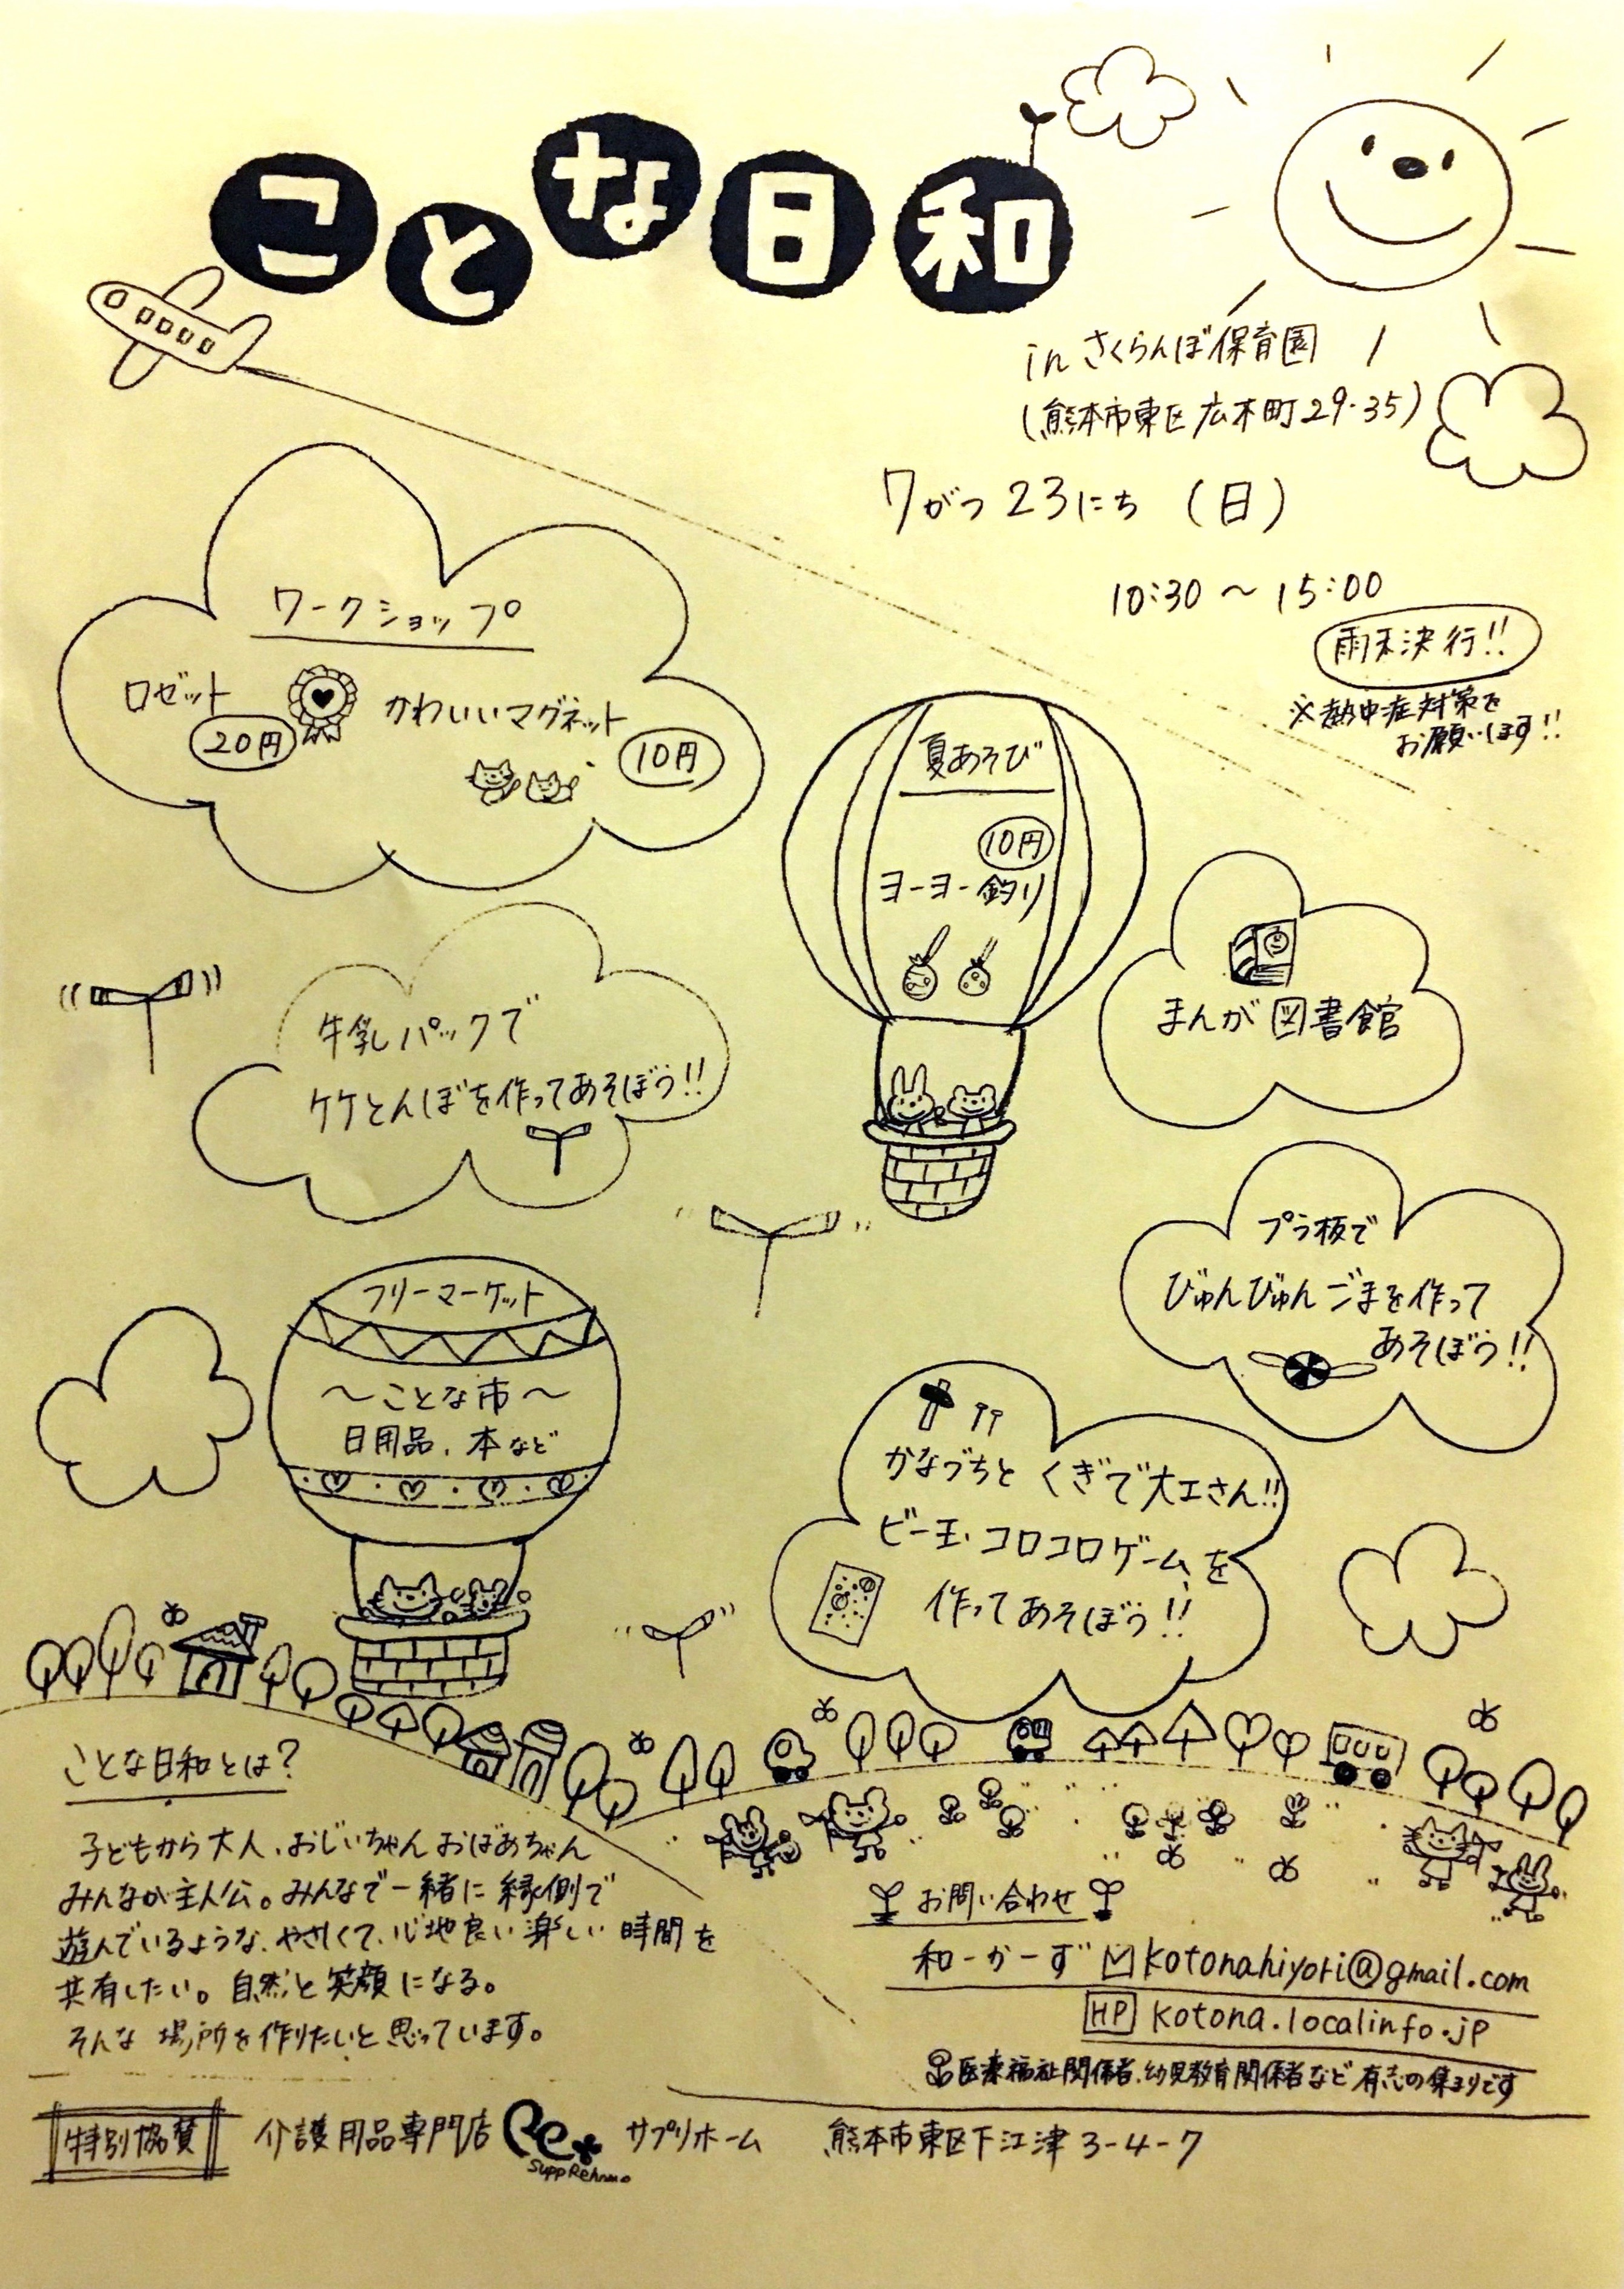 ことな日和
in さくらんぼ保育園
(熊本市東区広木町29-35)
7がつ23にち (日)
10:30〜15:00
雨天決行!!
※熱中症対策を
お願いします!!
ワークショップ
ロゼット
20円
かわいいマグネット
10円
夏あそび
10円
ヨーヨー釣り
まんが図書館
牛乳パックで
ケケとんぼを作ってあそぼう!!
プラ板で
びゅんびゅんごまを作って
あそぼう!!
フリーマーケット
〜ことな市〜
日用品、本など
かなづちとくぎで大工さん!!
ビー玉コロコロゲームを
作ってあそぼう!!
ことな日和とは?
子どもから大人、おじいちゃんおばあちゃん
みんなが主人公。みんなで一緒に縁側で
遊んでいるような、やさしくて、心地良い楽しい時間を
共有したい。自然と笑顔になる。
そんな場所を作りたいと思っています。
お問い合わせ
和-か-ず kotonahiyori@gmail.com
HP kotona.localinfo.jp
医療福祉関係者、幼児教育関係者など有志の集まりです
特別協賛 介護用品専門店 Re サプリホーム 熊本市東区下江津3-4-7